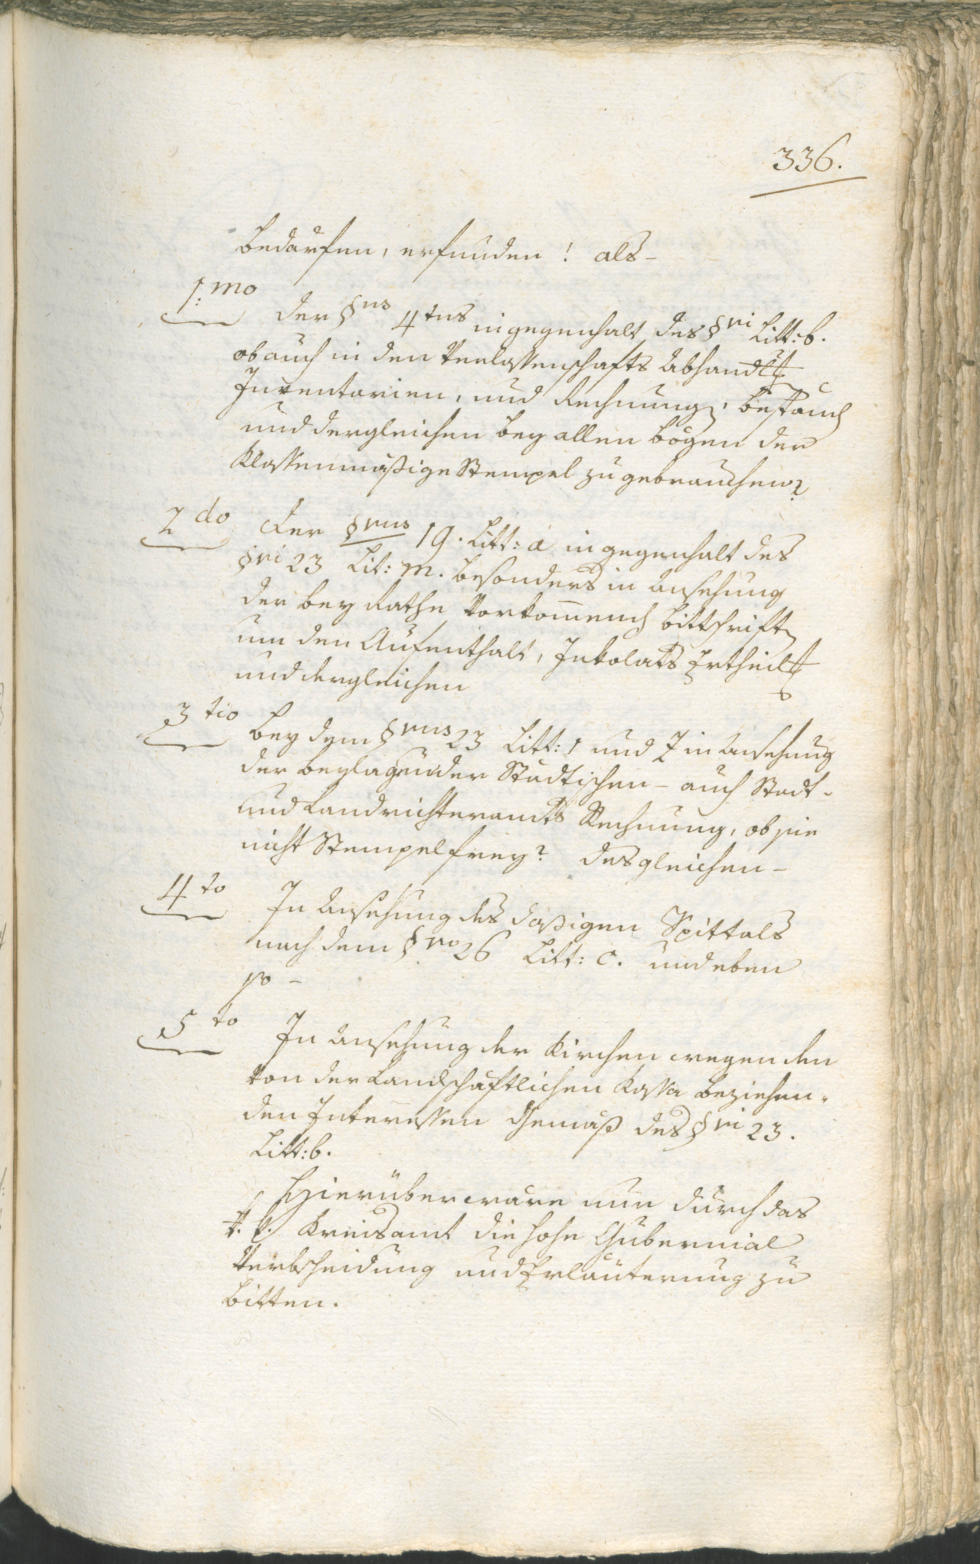 336.
bedarfen, erfunden! als-
1:mo der §nus 4tus ingegenhalt des §vi Litt: b.
ob auch in den Verlassenschafts Abhandl
Inventarien, und Rechnung,
und dergleichen bey allen bögen der
Klassenmäßige Stempel zu gebrauchen?
2do der §vus 19. Litt: a ingegenhalt des
§vi 23 Lit: m. besonders in Ansehung
der bey Rathe vorkom̅end Bittschrift
um den Aufenthalt, Inkolats Ertheil
und dergleichen
3tio bey dem §vus 23 Litt: 1 und Z in Ansehung
der Städtischen- auch Stadt-
und Landrichteramts Rechnung, ob sie
nicht Stempelfrey? desgleichen-
4to In Ansehung des dasigen Spittals
nach dem §vo 26 Litt: c. und eben
so -
5to In Ansehung der Kirchen wegen den
von der Landschaftlichen Kassa beziehen-
den Interessen Gemäß des §vi 23.
Litt: b.
Hierüber wäre nun durch das
Kreisamt die hohe Gubernial
Verbscheidung und Erläuterung zu
bitten.